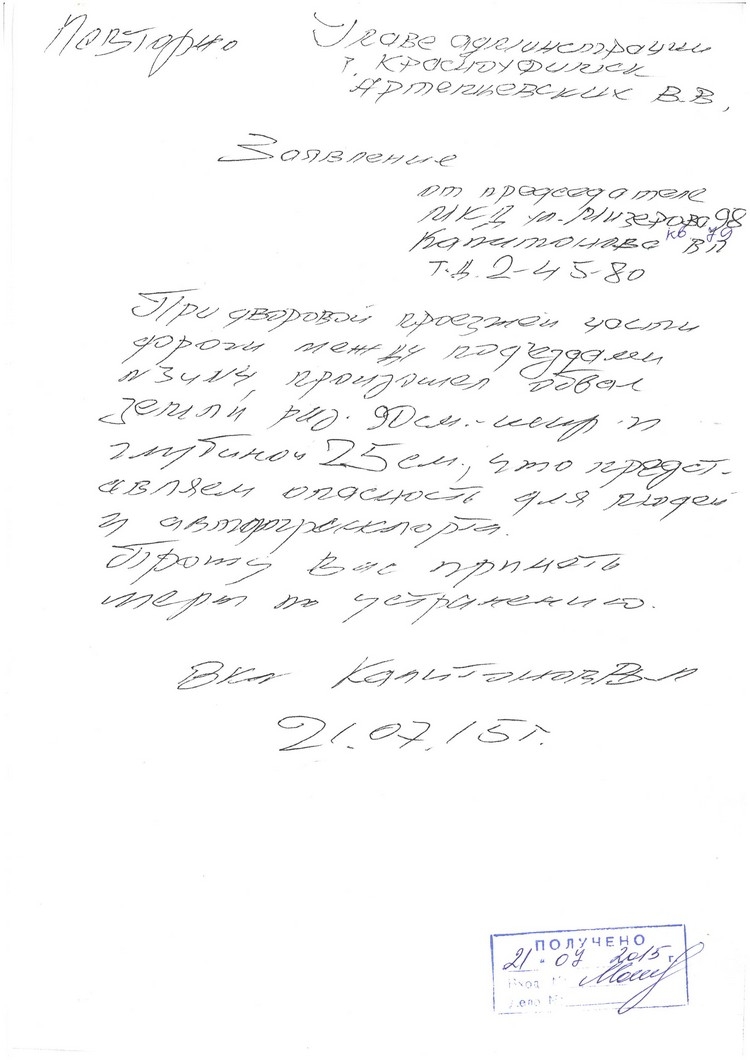 Повторно
Главе администрации
г. Красноуфимск
Артемьевских В.В.
Заявление
от председателя
МКД ул. Мизерова 98
Капитонова ВП
кв. 49
т.д. 2-45-80
При дворовой проезжей части
дороги между подъездами
№3 и №4 произошел обвал
земли, 90 см. шир. и
глубиной 25 см., что предст-
авляем опасность для людей
и автотранспорта.
Прошу Вас принять
меры по устранению.
Капитонов В.П
21.07.15г.
ПОЛУЧЕНО
21 " 07 2015 г.
Вход. №
Дело №